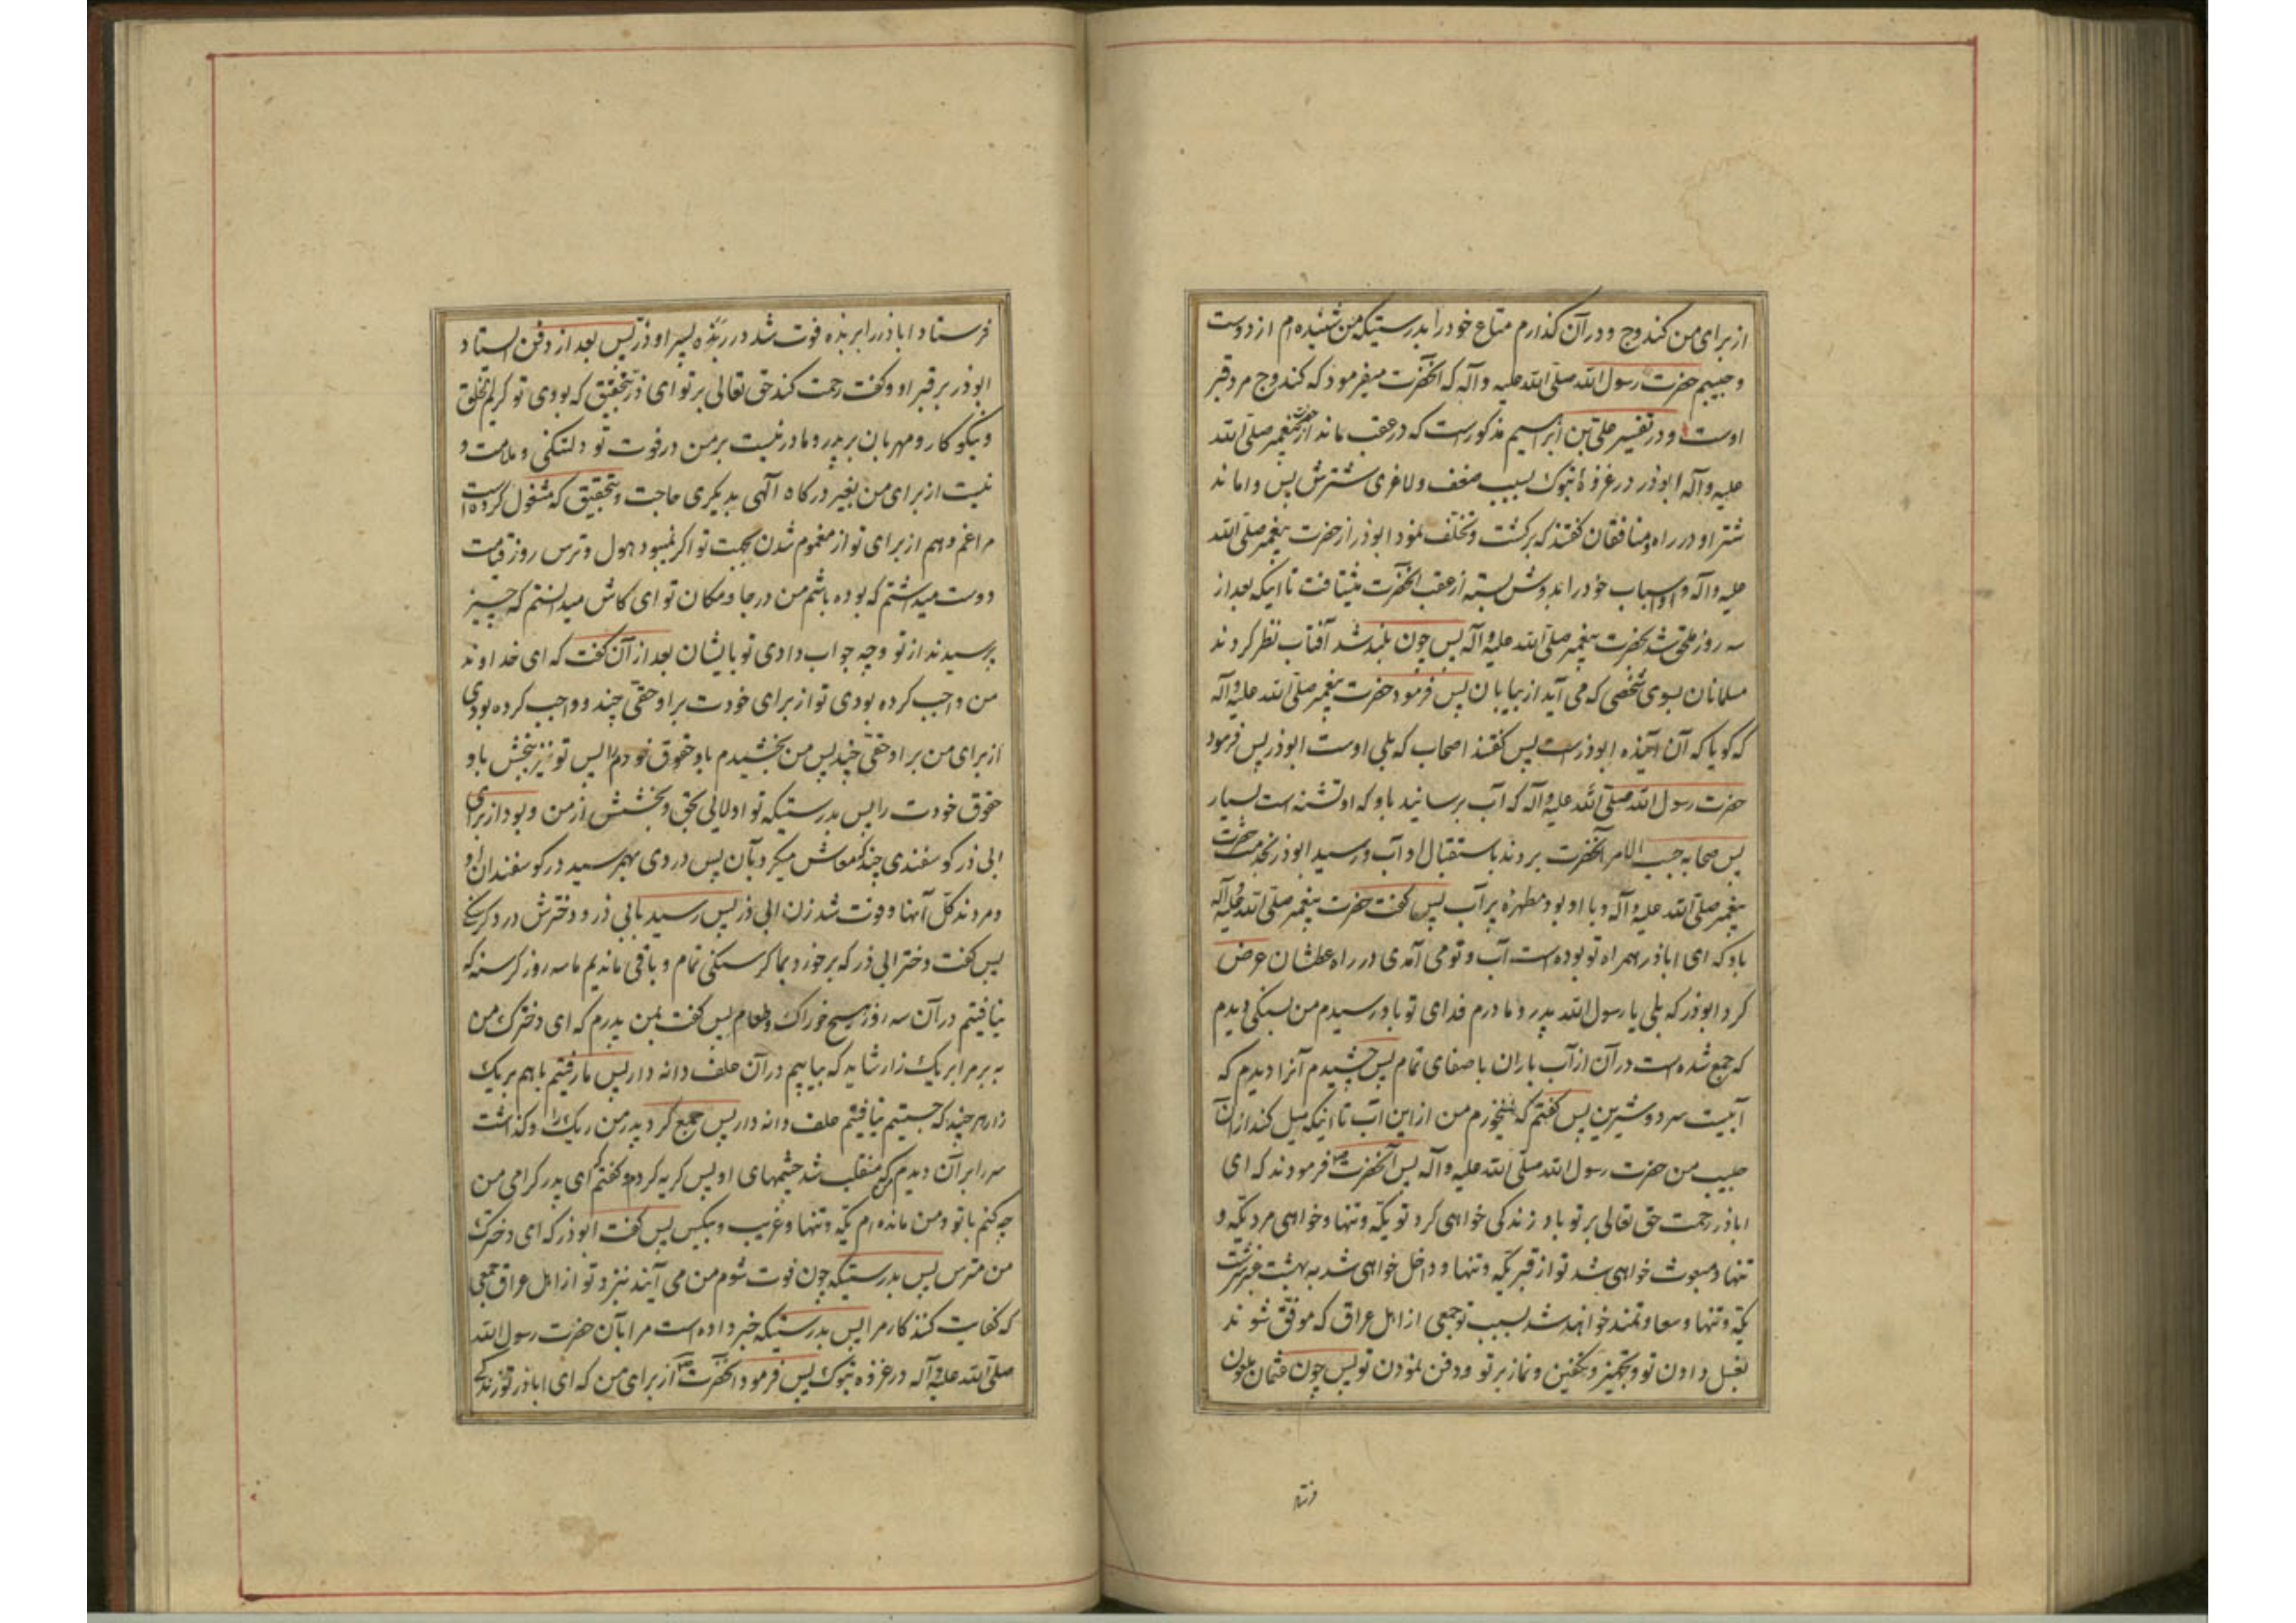 از برای من کندوج و در آن کذارم متاع خود را بدرستیکه من شنیده‌ام از دوست
و حبیبم حضرت رسول الله صلی الله علیه و آله که آنحضرت میفرمود که کندوج مرد قبر
اوست و در تفسیر علی بن ابراهیم مذکور است که در عقب ماند از حضرت پیغمبر صلی الله
علیه و آله ابوذر در غزوه تبوک بسبب ضعف و لاغری شترش پس واماند
شتر او در راه و منافقان کفتند که برکشت و تخلف نمود ابوذر از حضرت پیغمبر صلی الله
علیه و آله و او اسباب خود را بدوش بسته از عقب آنحضرت میشتافت تا اینکه بعد از
سه روز ملحق شد بحضرت پیغمبر صلی الله علیه و آله پس چون بلند شد آفتاب نظر کردند
مسلمانان بسوی شخصی که می آید از بیابان پس فرمود حضرت پیغمبر صلی الله علیه و آله
که کویا که آن آینده ابوذر است پس کفتند اصحاب که بلی اوست ابوذر پس فرمود
حضرت رسول الله صلی الله علیه و آله که آب برسانید باو که او تشنه است بسیار
پس صحابه حسب الامر آنحضرت بردند باستقبال او آب و رسید ابوذر بخدمت حضرت
پیغمبر صلی الله علیه و آله و با او بود مطهره پر آب پس کفت حضرت پیغمبر صلی الله علیه و آله
باو که ای اباذر همراه تو بوده است آب و تو می آمدی در راه عطشان عرض
کرد ابوذر که بلی یا رسول الله پدر و مادرم فدای تو باد رسیدم من بسنکی دیدم
که جمع شده است در آن از آب باران با صفای تمام پس چشیدم آنرا دیدم که
آبیست سرد و شیرین پس کفتم که نمیخورم من از این آب تا اینکه میل کند از آن
حبیب من حضرت رسول الله صلی الله علیه و آله پس آنحضرت فرمودند که ای
اباذر رحمت حق تعالی بر تو باد زندکی خواهی کرد تو یکه و تنها و خواهی مرد یکه و
تنها و مبعوث خواهی شد تو از قبر یکه و تنها و داخل خواهی شد به بهشت عنبرسرشت
یکه و تنها و سعادتمند خواهند شد بسبب تو جمعی از اهل عراق که موفق شوند
بغسل دادن تو و تجهیز و تکفین و نماز بر تو و دفن نمودن تو پس چون عثمان ملعون
فرستاد
فرستاد اباذر را بربذه فوت شد در ربذه پسر او ذر پس بعد از دفن استاد
ابوذر بر قبر او و کفت رحمت کند حق تعالی بر تو ای ذر بتحقیق که بودی تو کریم الخلق
و نیکوکار و مهربان بر پدر و مادر نیست بر من در فوت تو دلتنکی و ملامت و
نیست از برای من بغیر درکاه آلهی بدیکری حاجت و بتحقیق که مشغول کرده است
مرا غم و هم از برای تو از مغموم شدن بجهت تو اکر نمیبود هول و ترس روز قیامت
دوست میداشتم که بوده باشم من در جا و مکان تو ای کاش میدانستم که چه چیز
پرسیدند از تو و چه جواب دادی تو بایشان بعد از آن کفت که ای خداوند
من واجب کرده بودی تو از برای خودت بر او حقی چند و واجب کرده بودی
از برای من بر او حقی چند پس من بخشیدم باو حقوق خودم را پس تو نیز ببخش باو
حقوق خودت را پس بدرستیکه تو اولایی بحق و بخشش از من و بود از برای
ابی ذر کوسفندی چند که معاش میکرد بآن پس دردی بهمرسید در کوسفندان او
و مردند کل آنها و فوت شد زن ابی ذر پس رسید بابی ذر و دخترش درد کرسنکی
پس کفت دختر ابی ذر که برخورد بما کرسنکی تمام و باقی ماندیم ما سه روز کرسنه که
نیافتیم در آن سه روز هیچ خوراک و طعام پس کفت بمن پدرم که ای دخترک من
به بر مرا بریک زار شاید که بیابیم در آن علف دانه دار پس ما رفتیم با هم بریک
زار هر چند که جستیم نیافتیم علف دانه دار پس جمع کرد پدر من ریک را و کذاشت
سر را بر آن دیدم که منقلب شد چشمهای او پس کریه کردم و کفتم ای پدر کرامی من
چه کنم با تو و من مانده‌ام یکه و تنها و غریب و بیکس پس کفت ابوذر که ای دخترک
من مترس پس بدرستیکه چون فوت شوم من می آیند نزد تو از اهل عراق جمعی
که کفایت کنند کار مرا پس بدرستیکه خبر داده است مرا بآن حضرت رسول الله
صلی الله علیه و آله در غزوه تبوک پس فرمود آنحضرت از برای من که ای اباذر تو زندکی